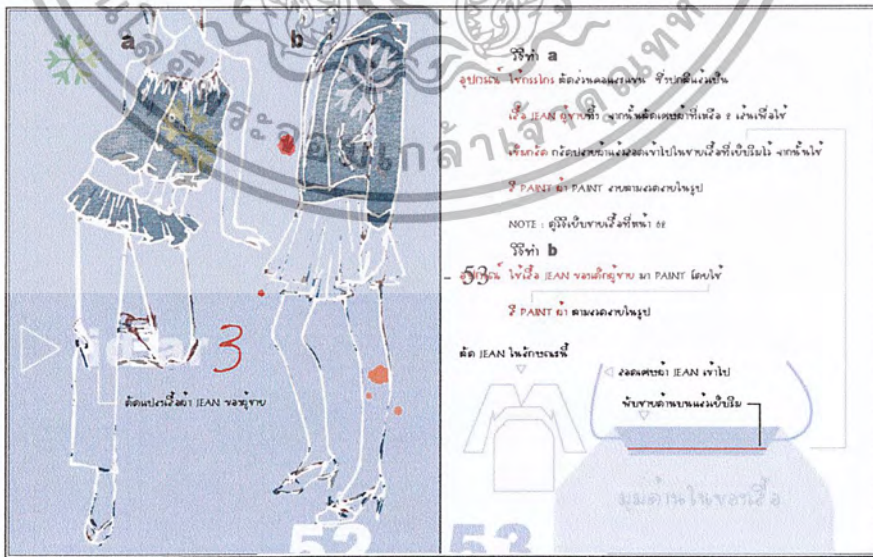 a
b
idear 3
ตัดแปลงเสื้อผ้า JEAN ของผู้ชาย
52
วิธีทำ a
อุปกรณ์ ใช้กรรไกร ตัดส่วนคอและแขน ซึ่งปกติแล้วเป็น
เสื้อ JEAN ผู้ชายทิ้ง จากนั้นตัดเศษผ้าที่เหลือ 2 เส้นเพื่อใช้
เข็มกลัด กลัดปลายผ้าแล้วสอดเข้าไปในชายเสื้อที่เย็บริมไว้ จากนั้นใช้
สี PAINT ผ้า PAINT ลายตามลวดลายในรูป
NOTE : ดูวิธีเย็บชายเสื้อที่หน้า
วิธีทำ b
- 53
อุปกรณ์ ใช้เสื้อ JEAN ของเด็กผู้ชาย มา PAINT โดยใช้
สี PAINT ผ้า ตามลวดลายในรูป
ตัด JEAN ในลักษณะนี้
สอดเศษผ้า JEAN เข้าไป
พับชายด้านบนแล้วเย็บริม
มุมด้านในของเสื้อ
53
พระจอมเกล้าเจ้าคุณทห